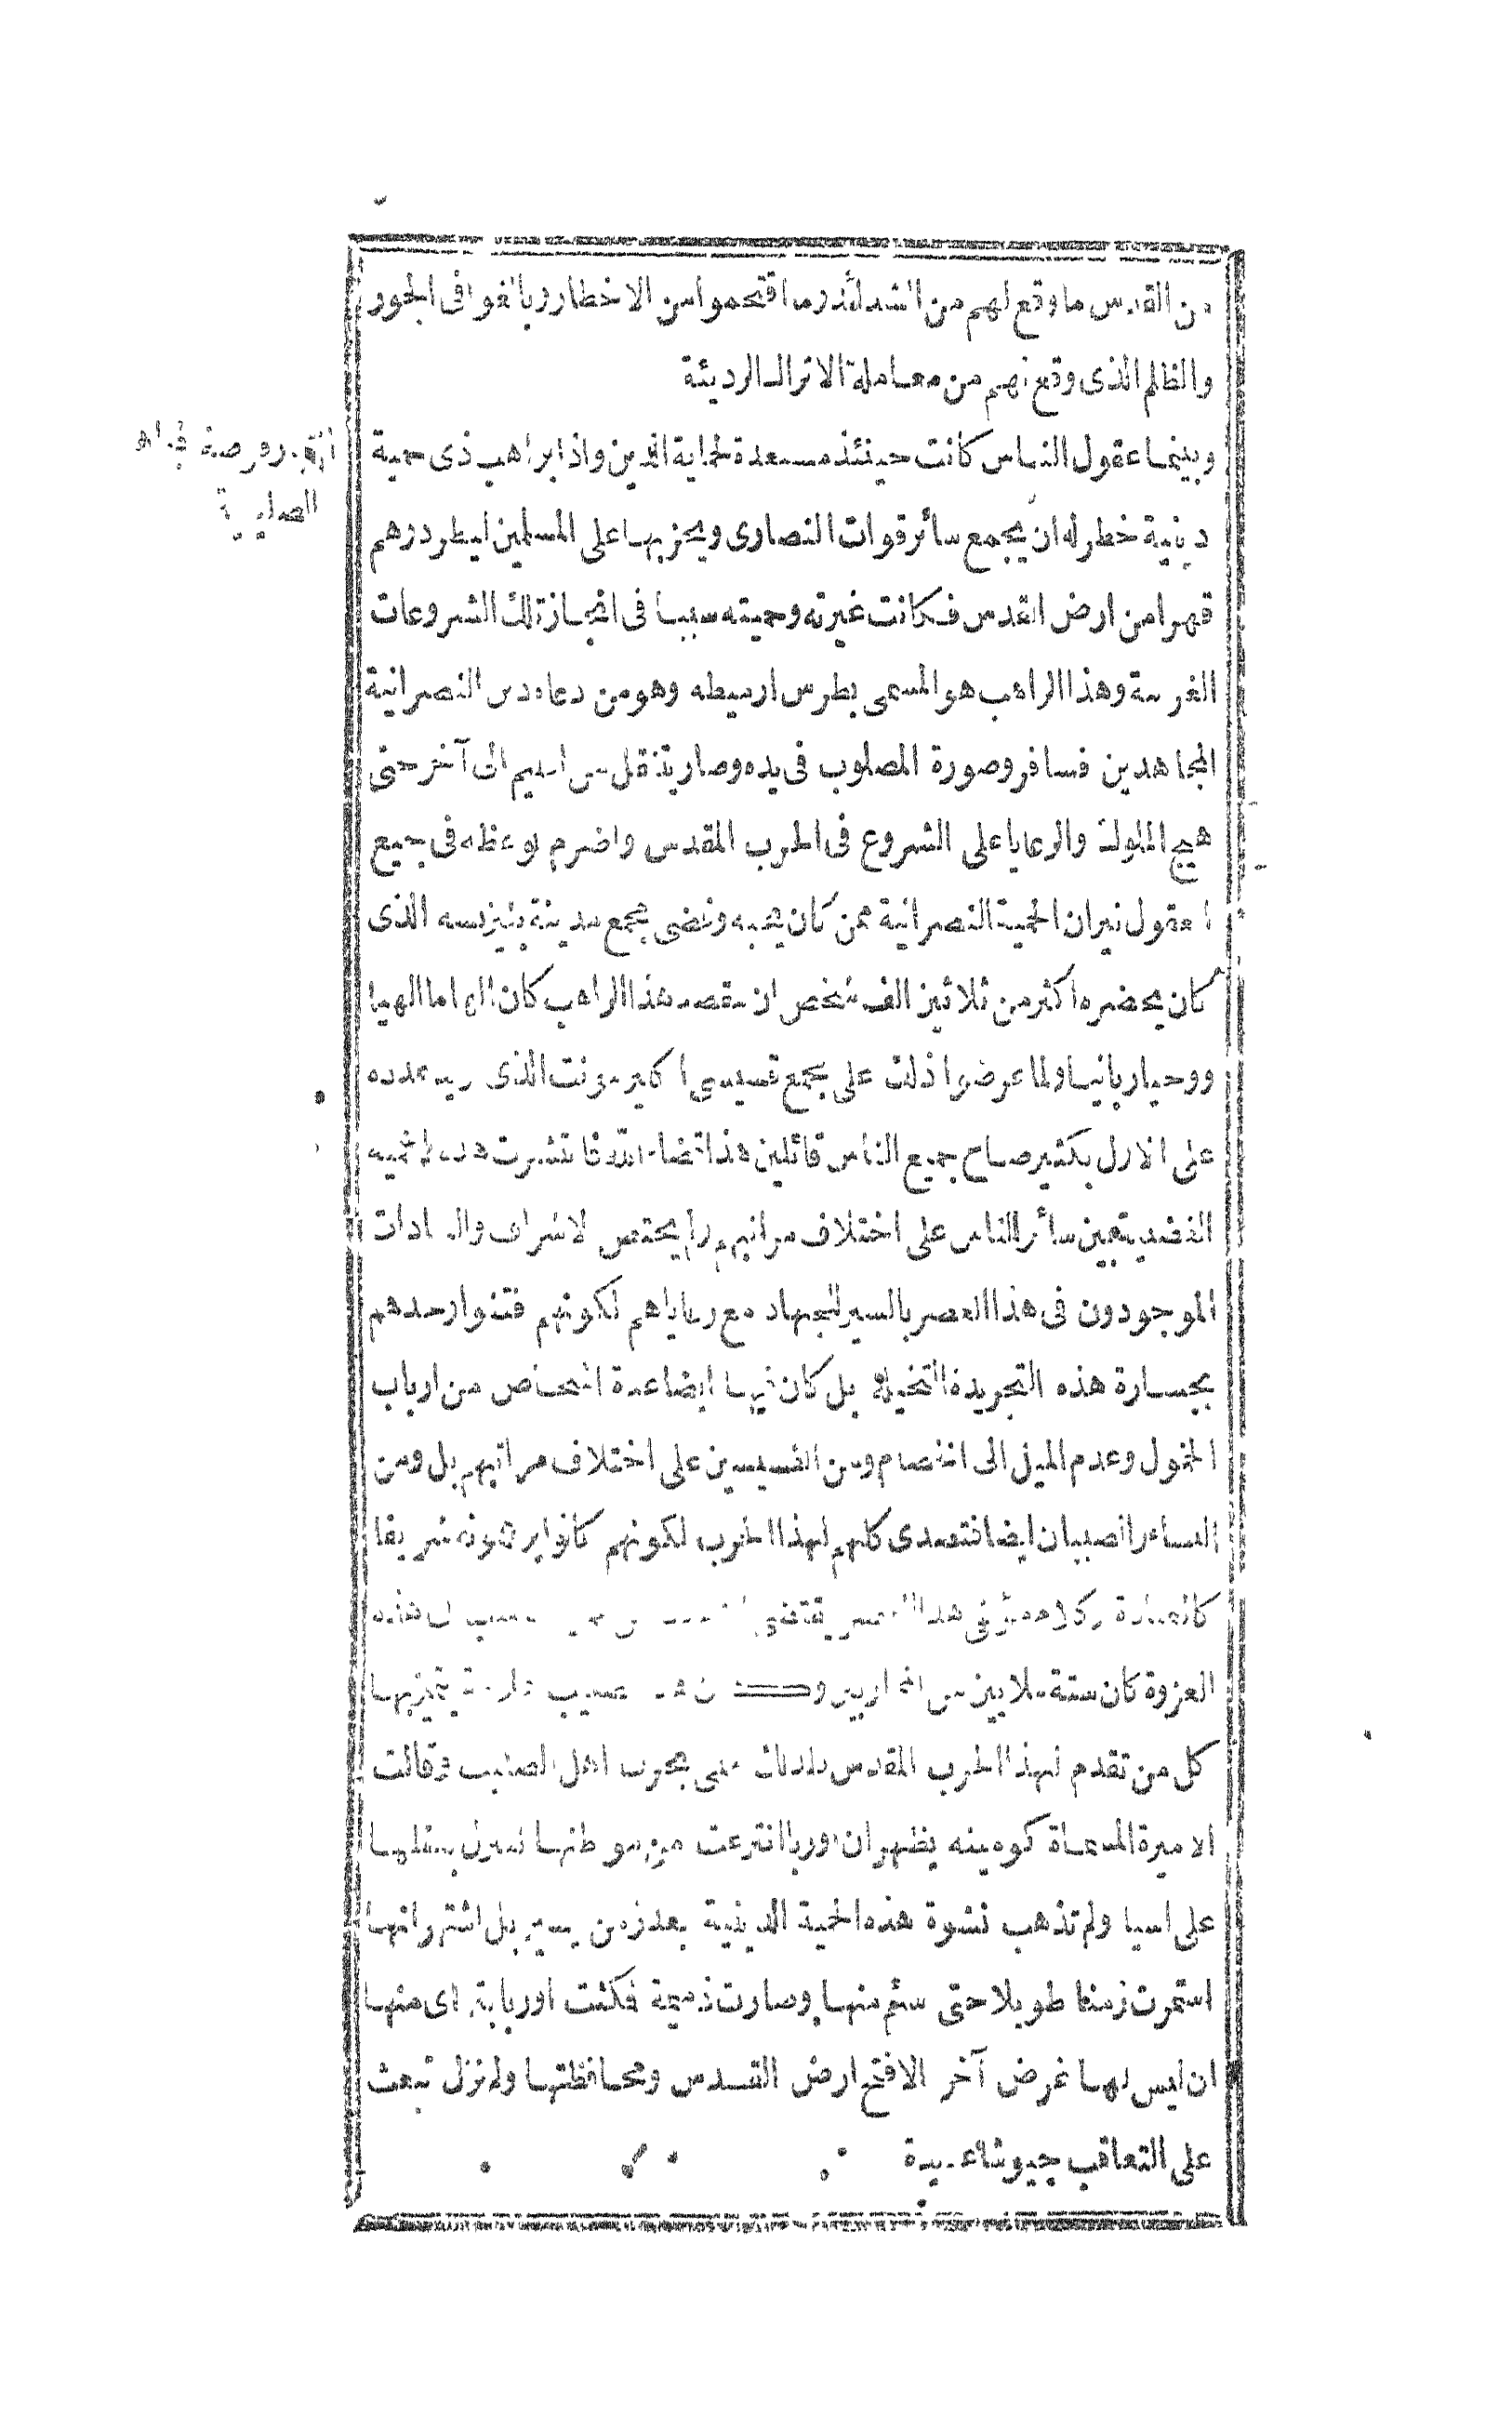 من القدس ما وقع لهم من الشدائد وما اقتحموا من الاخطار وبالغوا فى الجور
والظلم الذى وقع لهم من معاملة الاتراك الرديئة
وبينما عقول الناس كانت حينئذ مستعدة لحماية الدين واذا براهب ذى حمية
دينية خطر له ان يجمع سائر قوات النصارى ويحزبها على المسلمين ليطردوهم
قهرا من ارض القدس فكانت غيرته وحميته سببا فى انجاز تلك المشروعات
الغريبة وهذا الراهب هو المسمى بطرس ارميطه وهو من دعاه دين النصرانية
المجاهدين فسافر وصورة المصلوب فى يده وصار يتنقل من اقليم الى آخر حتى
هيج الملوك والرعايا على الشروع فى الحرب المقدس واضرم بوعظه فى جميع
العقول نيران الحمية النصرانية ممن كان يحبه وقضى مجمع مدينة بليزنسه الذى
كان يحضره اكثر من ثلاثين الف شخص ان مقصد هذا الراهب كان الهاما الهيا
ووحيا ربانيا ولما عرضوا ذلك على مجمع قسيسى كليرمونت الذى عدده
على الاول بكثير صاح جميع الناس قائلين هذا قضاء الله فانتشرت هذه الحميه
بين سائر الناس على اختلاف مراتبهم ولم يختص الاشراف والسادات
الموجودون فى هذا العصر بالسير للجهاد مع رعاياهم لكونهم فتنوا وحدهم
بجسارة هذه التجريدة التخيلية بل كان فيها ايضا عدة اشخاص من ارباب
الخمول وعدم الميل الى الخصام ومن القسيسين على اختلاف مراتبهم بل ومن
النساء والصبيان ايضا فتصدى كلهم لهذا الحرب لكونهم كانوا يرونه شريفا
كالعبادة وكلام مؤرخى هذا العصر يقتضى هذه
الغزوة كان ستة ملايين من المحاربين يتميز بها
كل من تقدم لهذا الحرب المقدس فلذلك سمى بحرب اهل الصليب وقالت
الاميرة المسماة كومينه يظهر ان اوربا انتزعت من موطنها لتنزل بثقلها
على اسيا ولم تذهب نشوة هذه الحمية الدينية بعد زمن يسير بل اشتهر انها
استمرت زمنا طويلا حتى سئم منها وصارت ذميمة فمكثت اوربا
ان ليس لها غرض آخر الا فتح ارض القدس ومحافظتها ولم تزل تبعث
على التعاقب جيوشا عديدة
الصليبية